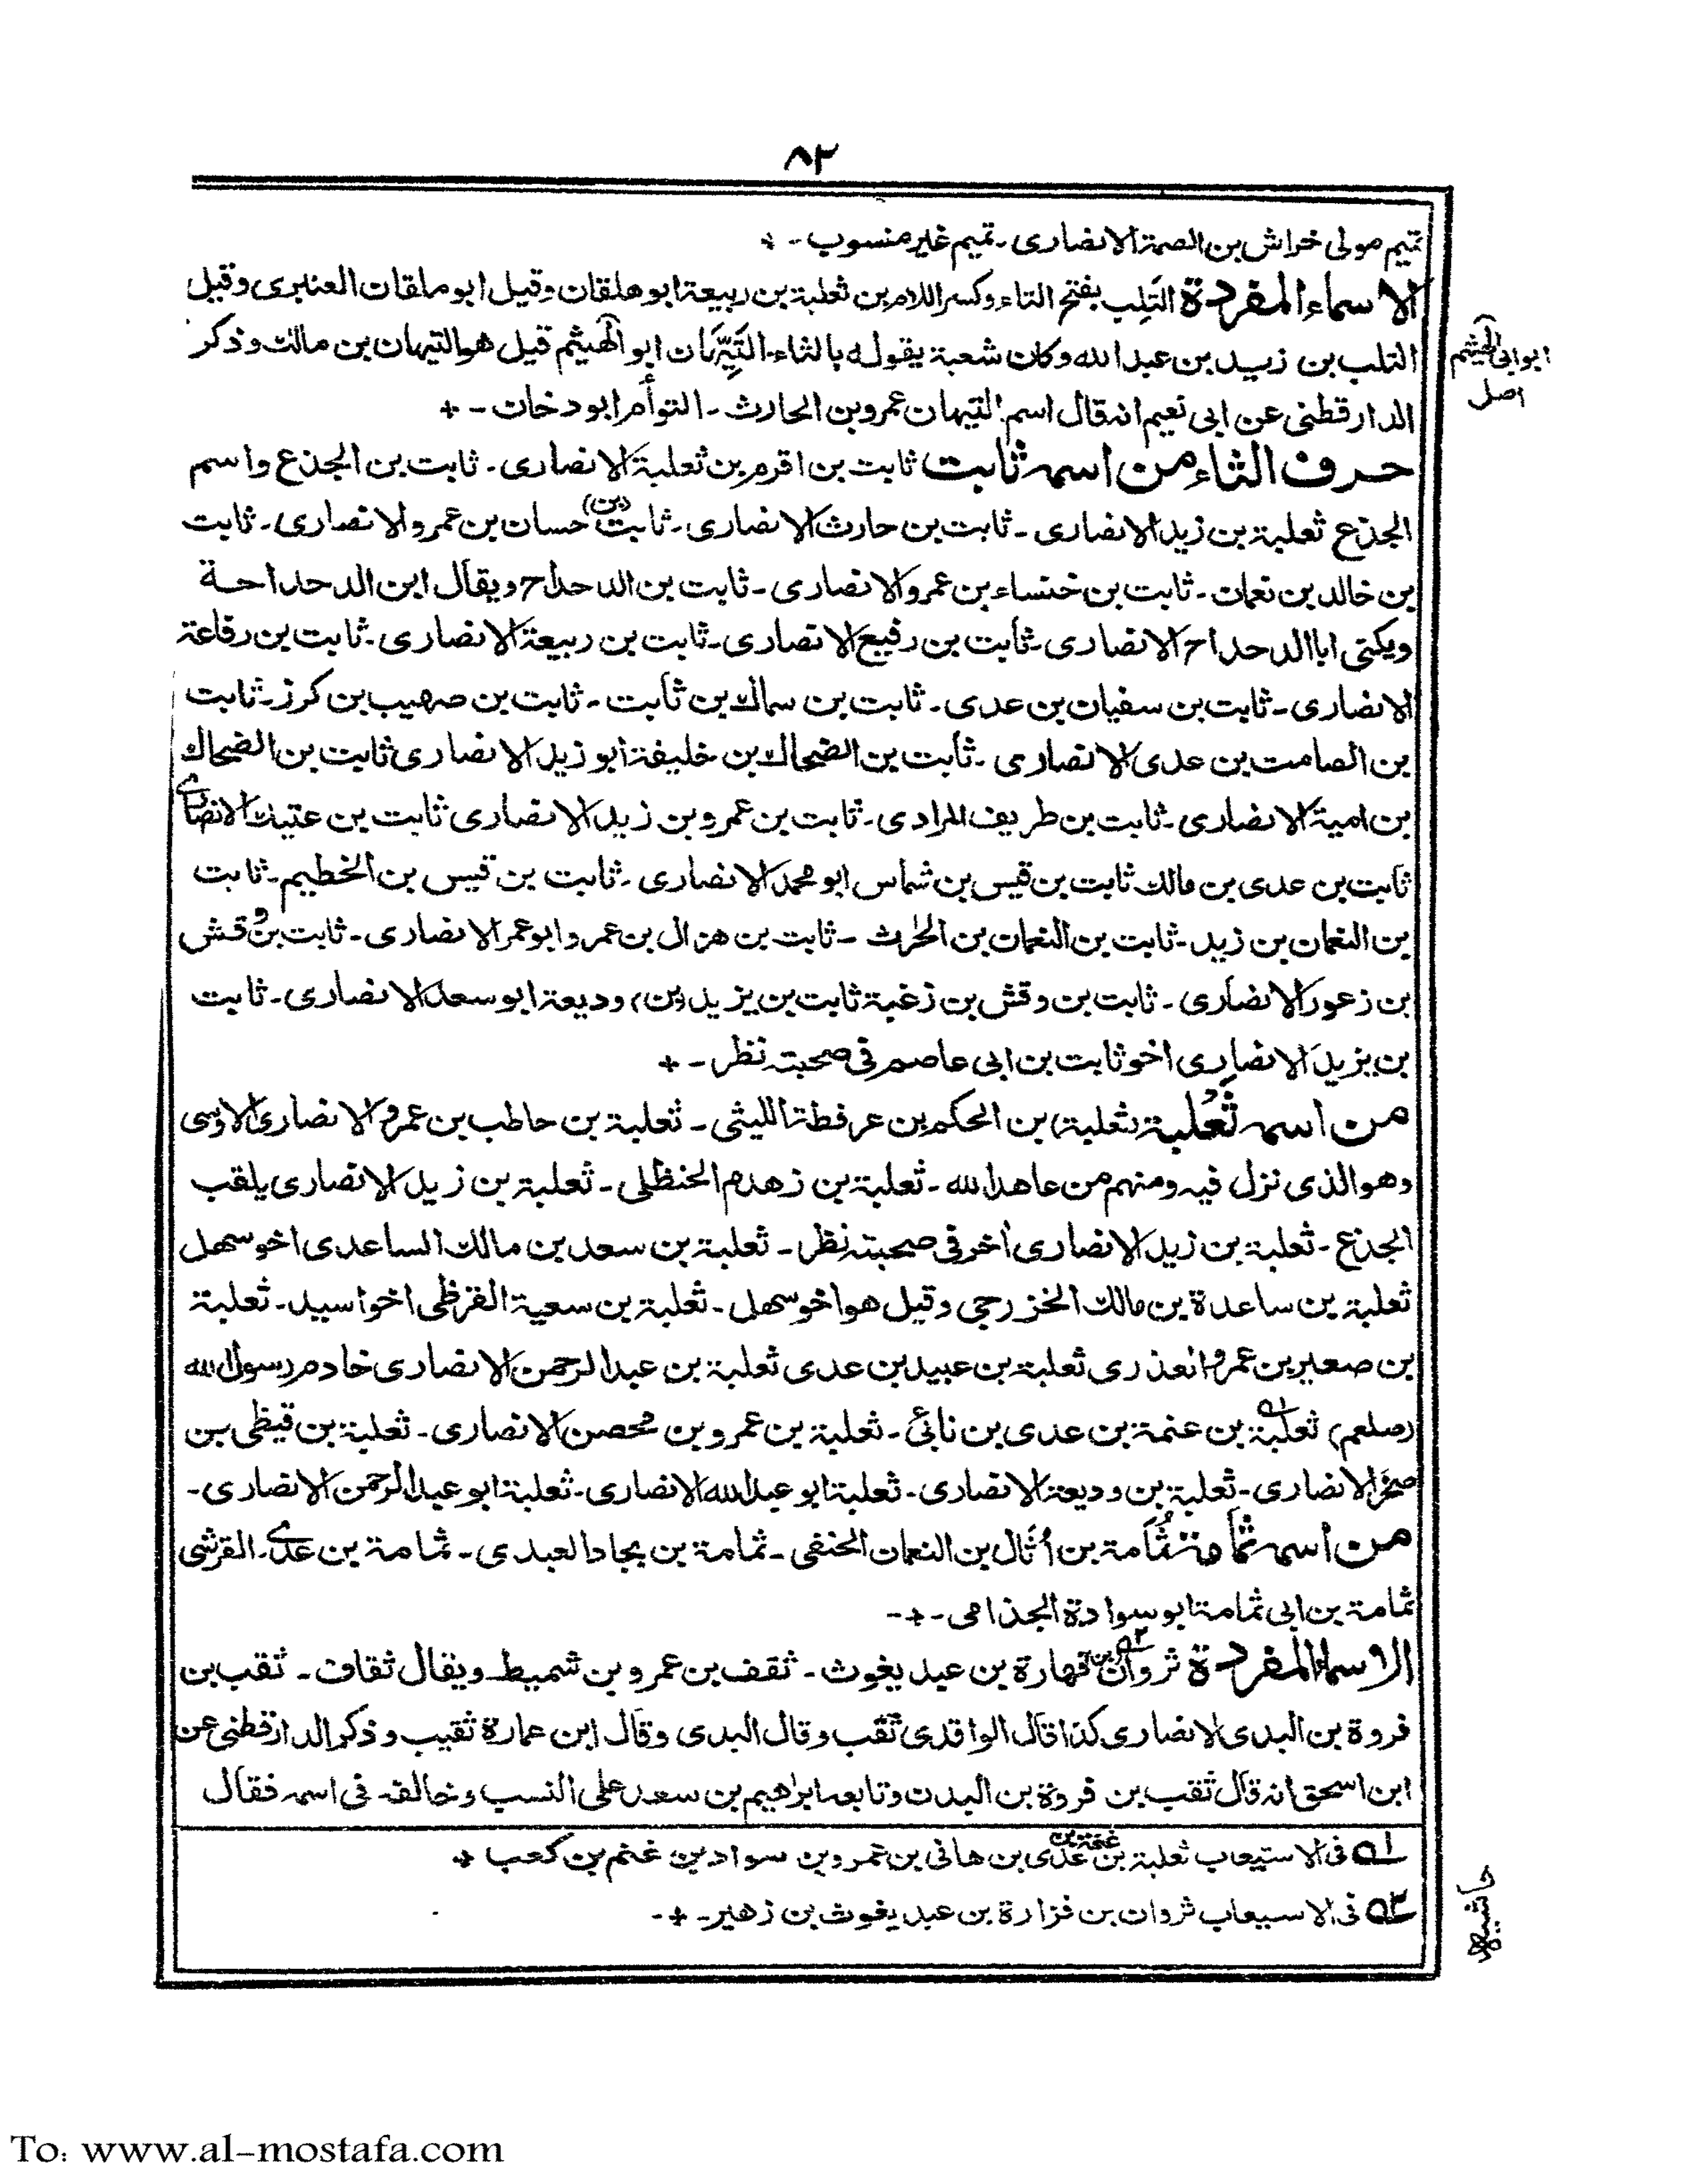 ٨٢
تميم مولى خراش بن الصمة الانصارى ـ تميم غير منسوب ـ +
الاسماء المفردة التَلِب بفتح التاء وكسر اللام بن ثعلبة بن ربيعة ابو هلقان وقيل ابو ملقان العنبرى وقيل
التلب بن زيد بن عبد الله وكان شعبة يقوله بالثاء ـ التَيِّهَان ابو الهيثم قيل هو التيهان بن مالك وذكر
ابو ابى الهيثم
اصل
الدارقطنى عن ابى نعيم انه قال اسم التيهان عمرو بن الحارث ـ التوأم ابو دخان ـ +
حرف الثاء من اسمه ثابت ثابت بن اقرم بن ثعلبة الانصارى ـ ثابت بن الجذع واسم
الجذع ثعلبة بن زيد الانصارى ـ ثابت بن حارث الانصارى ـ ثابت (بن) حسان بن عمرو الانصارى ـ ثابت
بن خالد بن نعمان ـ ثابت بن خنساء بن عمرو الانصارى ـ ثابت بن الدحداح ويقال ابن الدحداحة
ويكنى ابا الدحداح الانصارى ـ ثابت بن رفيع الانصارى ـ ثابت بن ربيعة الانصارى ـ ثابت بن رفاعة
الانصارى ـ ثابت بن سفيان بن عدى ـ ثابت بن سماك بن ثابت ـ ثابت بن صهيب بن كرز ـ ثابت
بن الصامت بن عدى الانصارى ـ ثابت بن الضحاك بن خليفة ابو زيد الانصارى ثابت بن الضحاك
بن امية الانصارى ـ ثابت بن طريف المرادى ـ ثابت بن عمرو بن زيد الانصارى ثابت بن عتيك الانصارى
ثابت بن عدى بن مالك ثابت بن قيس بن شماس ابو محمد الانصارى ـ ثابت بن قيس بن الخطيم ـ ثابت
بن النعمان بن زيد ـ ثابت بن النعمان بن الحرث ـ ثابت بن هزال بن عمرو ابو عمر الانصارى ـ ثابت بن وقش
بن زعور الانصارى ـ ثابت بن وقش بن زغبة ثابت بن يزيد (بن) وديعة ابو سعد الانصارى ـ ثابت
بن يزيد الانصارى اخو ثابت بن ابى عاصم فى صحبته نظر ـ +
من اسمه ثعلبة (ثعلبة) بن الحكم بن عرفطة الليثى ـ ثعلبة بن حاطب بن عمرو الانصارى الاوسى
وهو الذى نزل فيه ومنهم من عاهد الله ـ ثعلبة بن زهدم الحنظلى ـ ثعلبة بن زيد الانصارى يلقب
الجذع ـ ثعلبة بن زيد الانصارى اخر فى صحبته نظر ـ ثعلبة بن سعد بن مالك الساعدى اخو سهل
ثعلبة بن ساعدة بن مالك الخزرجى وقيل هو اخو سهل ـ ثعلبة بن سعية القرظى اخو اسيد ـ ثعلبة
بن صعير بن عمرو العذرى ثعلبة بن عبيد بن عدى ثعلبة بن عبد الرحمن الانصارى خادم رسول الله
(صلعم) ثعلبة ١ه بن عنمة بن عدى بن نابئ ـ ثعلبة بن عمرو بن محصن الانصارى ـ ثعلبة بن قيظى بن
صخر الانصارى ـ ثعلبة بن وديعة الانصارى ـ ثعلبة ابو عبد الله الانصارى ـ ثعلبة ابو عبد الرحمن الانصارى ـ
من اسمه ثمامة ثُمَامة بن اُثال بن النعمان الحنفى ـ ثمامة بن بجاد العبدى ـ ثمامة بن عدى القرشى
ثمامة بن ابى ثمامة ابو سوادة الجذامى ـ + ـ
الاسماء المفردة ثروان ٢ه (بن) قهارة بن عبد يغوث ـ ثقف بن عمرو بن شميط ويقال ثقاف ـ ثقب بن
فروة بن البدى الانصارى كذا قال الواقدى ثقب وقال البدى وقال ابن عمارة ثقيب وذكر الدارقطنى عن
ابن اسحق انه قال ثقب بن فروة بن البدن وتابعه ابراهيم بن سعد على النسب وخالفه فى اسمه فقال
١ه فى الاستيعاب ثعلبة بن غنمة بن عدى بن هانى بن عمرو بن سواد بن غنم بن كعب +
٢ه فى الاسيعاب ثروان بن فزارة بن عبد يغوث بن زهير ـ + ـ
حاشيه
To: www.al-mostafa.com